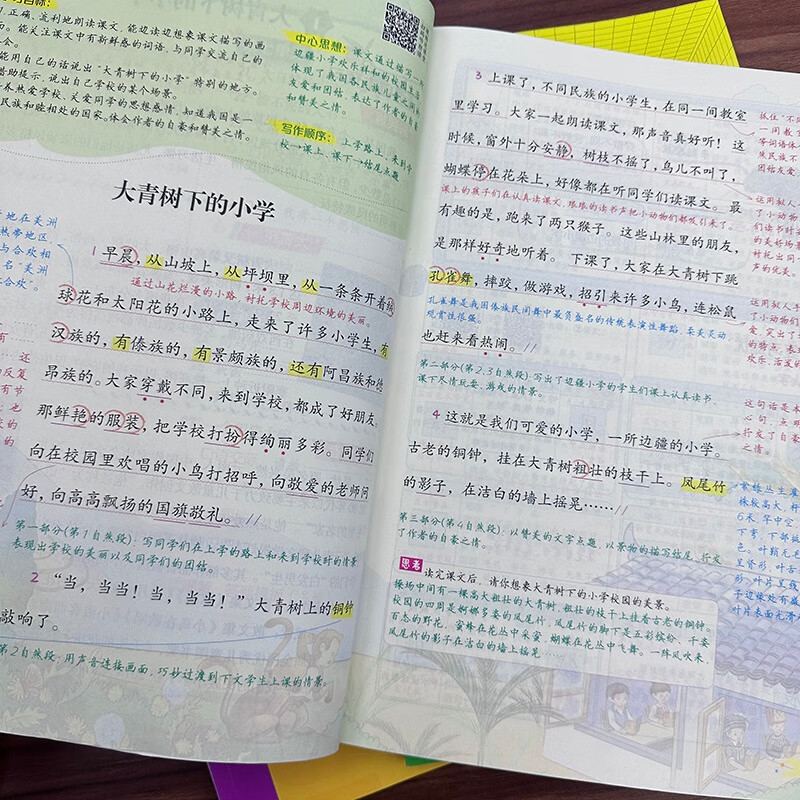 习目标：
正确、流利地朗读课文，能边读边想象课文描写的画
面。能关注课文中有新鲜感的词语，与同学交流自己的
能用自己的话说出“大青树下的小学”特别的地方。
借助提示，说出自己学校的某个场景。
养热爱学校、关爱同学的思想感情，知道我国是一
民族和睦相处的国家。体会作者的自豪和赞美之情。
中心思想：课文通过描写
边疆小学欢乐祥和的校园生活，
体现了我国各民族儿童之间的
友爱和团结，表达了作者的自豪
和赞美之情。
写作顺序：上学路上、来到学
校→课上、课下→结尾点题
大青树下的小学
1 早晨，从山坡上，从坪坝里，从一条条开着绒
球花和太阳花的小路上，走来了许多小学生，有
汉族的，有傣族的，有景颇族的，还有阿昌族和德
昂族的。大家穿戴不同，来到学校，都成了好朋友。
那鲜艳的服装，把学校打扮得绚丽多彩。同学们
向在校园里欢唱的小鸟打招呼，向敬爱的老师问
好，向高高飘扬的国旗敬礼。//
通过山花烂漫的小路，衬托学校周边环境的美丽。
地在美洲
热带地区，
与合欢相
名“美洲
合欢”。
第一部分(第1自然段)：写同学们在上学的路上和来到学校时的情景
表现出学校的美丽以及同学们的团结。
2 “当，当当！当，当当！”大青树上的铜钟
敲响了。
第2自然段：用声音连接画面，巧妙过渡到下文学生上课的情景。
3 上课了，不同民族的小学生，在同一间教室
里学习。大家一起朗读课文，那声音真好听！这
时候，窗外十分安静，树枝不摇了，鸟儿不叫了，
蝴蝶停在花朵上，好像都在听同学们读课文。最
课上的孩子们在认真读课文，琅琅的读书声把小动物们都吸引来了。
有趣的是，跑来了两只猴子。这些山林里的朋友，
是那样好奇地听着。下课了，大家在大青树下跳
孔雀舞，摔跤，做游戏，招引来许多小鸟，连松鼠
孔雀舞是我国傣族民间舞中最负盛名的传统表演性舞蹈，柔美灵动，
观赏性很强。
也赶来看热闹。//
第二部分(第2、3自然段)：写出了边疆小学的学生们课上认真读书、
课下尽情玩耍、游戏的情景。
4 这就是我们可爱的小学，一所边疆的小学。
古老的铜钟，挂在大青树粗壮的枝干上。凤尾竹
的影子，在洁白的墙上摇晃……//
第三部分(第4自然段)：以赞美的文字点题，以景物的描写结尾，抒发
了作者的自豪之情。
思考 读完课文后，请你想象大青树下的小学校园的美景。
操场中间有一棵高大粗壮的大青树，粗壮的枝干上挂着古老的铜钟。
校园的四周是婀娜多姿的凤尾竹，凤尾竹的脚下是五彩缤纷、千姿
百态的野花，蜜蜂在花丛中采蜜，蝴蝶在花丛中飞舞。一阵风吹来，
凤尾竹的影子在洁白的墙上摇晃……